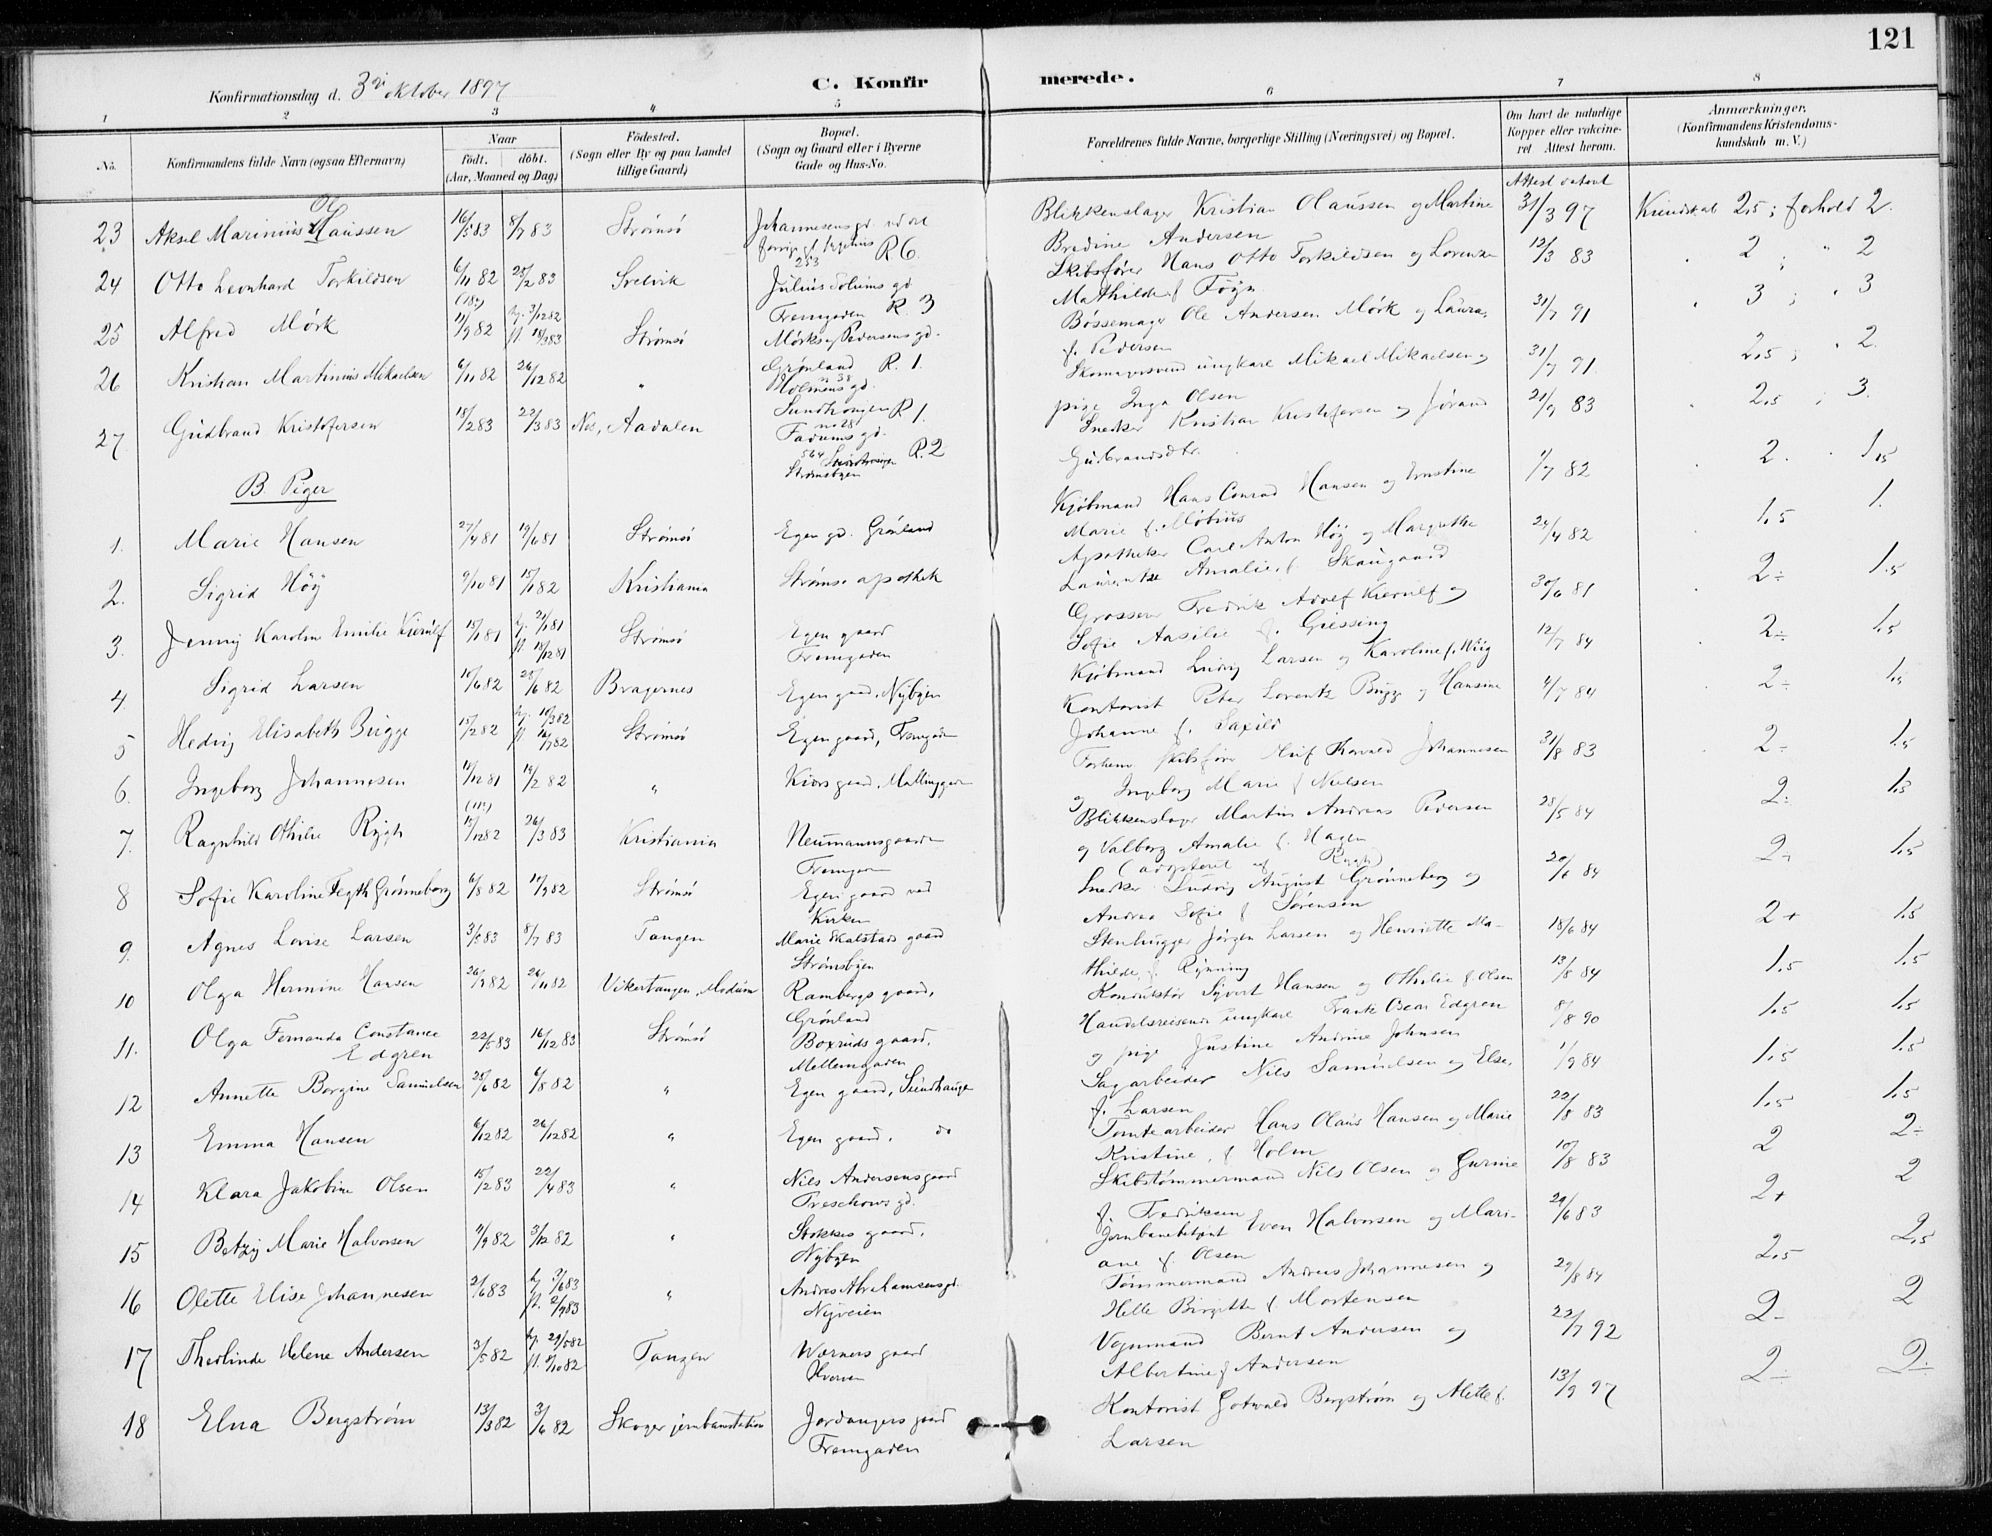 121
Konfirmationsdag d. 3die oktober 1897
C. Konfirmerede.
1 2 3 4 5 6 7 8
No. Konfirmandens fulde Navn (ogsaa Efternavn) Naar födt. döbt. (Aar, Maaned og Dag) Födested. (Sogn eller By og paa Landet tillige Gaard) Bopæl. (Sogn og Gaard eller i Byerne Gade og Hus-No. Forældrenes fulde Navne, borgerlige Stilling (Næringsvei) og Bopæl. Om havt de naturlige Kopper eller vaccineret. Attest herom. Anmærkninger. (Konfirmandens Kristendomskundskab m. V.)
Attest dateret
23 Aksel Marinius Olaussen 16/5 83 8/7 83 Strømsø Johannesens gd. Blikkenslager Kristian Olaussen og Martine 31/3 97 Kundskab 2,5; forhold 2.
R 6. Bredine Andersen
24 Otto Leonhard Torkildsen 6/11 82 25/2 83 Svelvik Julius Soliems gd Skibsfører Hans Otto Torkildsen og Lorenze 12/3 83 2 ; " 2
Fremgaden R. 3 Mathilde f. Føyn
25 Alfred Mørk 11/9 82 hj. 3/12 82 fl. 18/3 83 Strømsø Mørks og Pedersens gd. Bøssemager Ole Andersen Mørk og Laura, 31/7 91 3 ; " 3
Grønland R. 1. f. Pedersen
26 Kristian Martinius Mikaelsen 6/11 82 26/12 82 " Holmens gd. Skomagersvend ungkarl Mikael Mikaelsen og 31/7 91 2,5 ; " 2.
Sundhaugen R 1. pige Inga Olsen
27 Gudbrand Kristofersen 18/2 83 23/3 83 Nes, Aadalen Fadums gd. Snedker Kristian Kristofersen og Jørand 21/9 83 2,5 ; 3.
Strømsbyen R. 2 Gudbrandsdtr.
B. Piger
1. Marie Hansen 27/4 81 19/6 81 Strømsø Egen gd. Grønland Kjøbmand Hans Conrad Hansen og Ernstine 1/7 82 2. 1,5
Marie f. Möbius
2. Sigrid Höy 9/10 81 15/1 82 Kristiania Strømsø apothek Apotheker Carl Anton Höy og Margrethe 24/4 82 1,5 1.
Laurentze Amalie f. Skaugaard
3. Jenny Karoline Emilie Kierulf 15/1 81 hj. 21/1 81 fl. 18/12 81 Strømsø Egen gaard Grosserer Fredrik Adolf Kierulf og 30/6 81 2÷ 1.5
Fremgaden Sofie Aasilie f. Giessing
4. Sigrid Larsen 10/6 82 25/6 82 Bragernes Egen gaard, Nybyen Kjøbmand Ludvig Larsen og Karoline f. Wiig 12/7 84 2÷ 1,5
5 Hedvig Elisabeth Bugge 15/2 82 hj. 10/3 82 fl. 16/7 82 Strømsø Egen gaard, Fremgaden Kontorist Peter Lorentz Bugge og Hansine 4/7 84 2÷ 1,5
Johanne f. Saxild
6. Ingeborg Johannesen 11/12 81 19/2 82 " Kiørs gaard, Mallinggaden Forhenv. skibsfører Johannesen 31/8 83 2÷ 1.5
og Ingeborg Marie f. Nielsen
7. Ragnhild Othilie Rygh 15/12 82 26/3 83 Kristiania Neumannsgaarden Blikkenslager Martin Andreas Pedersen 28/5 84 2÷ 1,5
Fremgaden og Valborg Amalie f. Hagen
(adopteret af Rygh)
8 Sofie Karoline Tegth Grønneberg 6/8 82 17/9 82 Strømsø Egen gaard ved Snedker Ludvig August Grønneberg og 20/6 84 2÷ 1.5
Kirken Andrea Sofie f. Sørensen
9. Agnes Lovise Larsen 3/5 83 8/7 83 Tangen Marie Skalstads gaard Stenhugger Jørgen Larsen og Henriette Ma- 18/6 84 2+ 1.5
Strømsbyen thilde f. Ryning
10 Olga Hermine Hansen 26/9 82 26/11 82 Vikertangen, Modum Rambergs gaard, Konduktør Syvert Hansen og Othilie f. Olsen 13/8 84 1,5 1,5
Grønland
11. Olga Fernanda Constance 22/5 83 16/12 83 Strømsø Boxruds gaard, Handelsreisende ungkarl Frantz Oscar Edgren 8/8 90 1,5 1,5
Edgren Mellemgaden og pige Justine Andrine Johnsen
12 Annette Bergine Samuelsen 25/6 82 6/8 82 " Egen gaard, Sundhaugen Sagarbeider Nils Samuelsen og Else, 1/9 84 1,5 1.5
f. Larsen
13 Emma Hansen 6/12 82 26/12 82 " Egen gaard, do Tomtearbeider Hans Olaus Hansen og Marie 22/8 83 1,5 1,5
Kristine, f. Holm
14 Klara Jakobine Olsen 15/2 83 22/4 83 " Nils Andersens gaard Skibstømmermand Nils Olsen og Gurine 10/8 83 2 2÷
Treschows gd. f. Fredriksen
15 Betzy Marie Halvorsen 4/9 82 3/12 82 " Stokkes gaard, Jernbanebetjent Even Halvorsen og Mari- 29/6 83 2+ 2
Nybyen ane f. Olsen
16 Olette Elise Johannesen 2/6 83 hj. 7/6 83 fl. 2/9 83 " Andreas Abrahamsens gd. Tømmermand Andreas Johannesen og 29/8 84 2,5 2,5
Nyveien Helle Birgitte f. Mortensen
17 Theolinde Helene Andersen 3/5 82 hj. 29/5 82 fl. 8/10 82 Tangen Wærners gaard Vognmand Bernt Andersen og 22/7 92 2- 2
Hverven Albertine f. Andersen
18 Elna Bergstrøm 13/3 82 3/6 82 Skoger jernbanstation Jordangers gaard Kontorist Gotwald Bergstrøm og Alette f. 13/9 97 2÷ 2÷
Fremgaden Larsen